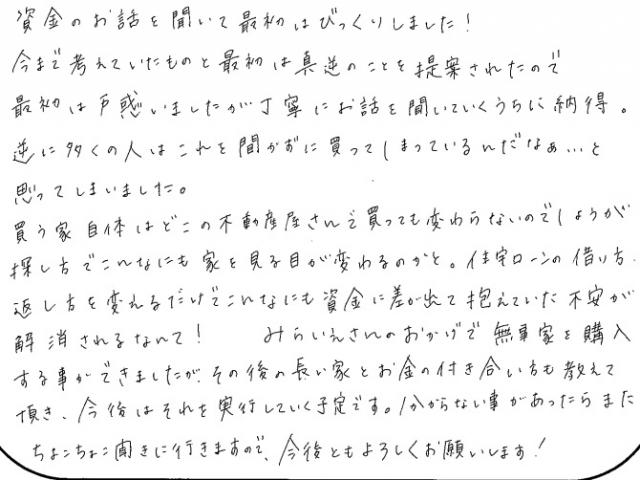 資金のお話を聞いて最初はびっくりしました！
今まで考えていたものと最初は真逆のことを提案されたので
最初は戸惑いましたが丁寧にお話を聞いていくうちに納得。
逆に多くの人はこれを聞かずに買ってしまっているんだなぁ…と
思ってしまいました。
買う家自体はどこの不動産屋さんで買っても変わらないのでしょうが
探し方でこんなにも家を見る目が変わるのかと。住宅ローンの借り方、
返し方を変えるだけでこんなにも資金に差が出て抱えていた不安が
解消されるなんて！ みらいえさんのおかげで無事家を購入
する事ができましたが、その後の長い家とお金の付き合い方も教えて
頂き、今後はそれを実行していく予定です。分からない事があったらまた
ちょこちょこ聞きに行きますので、今後ともよろしくお願いします！